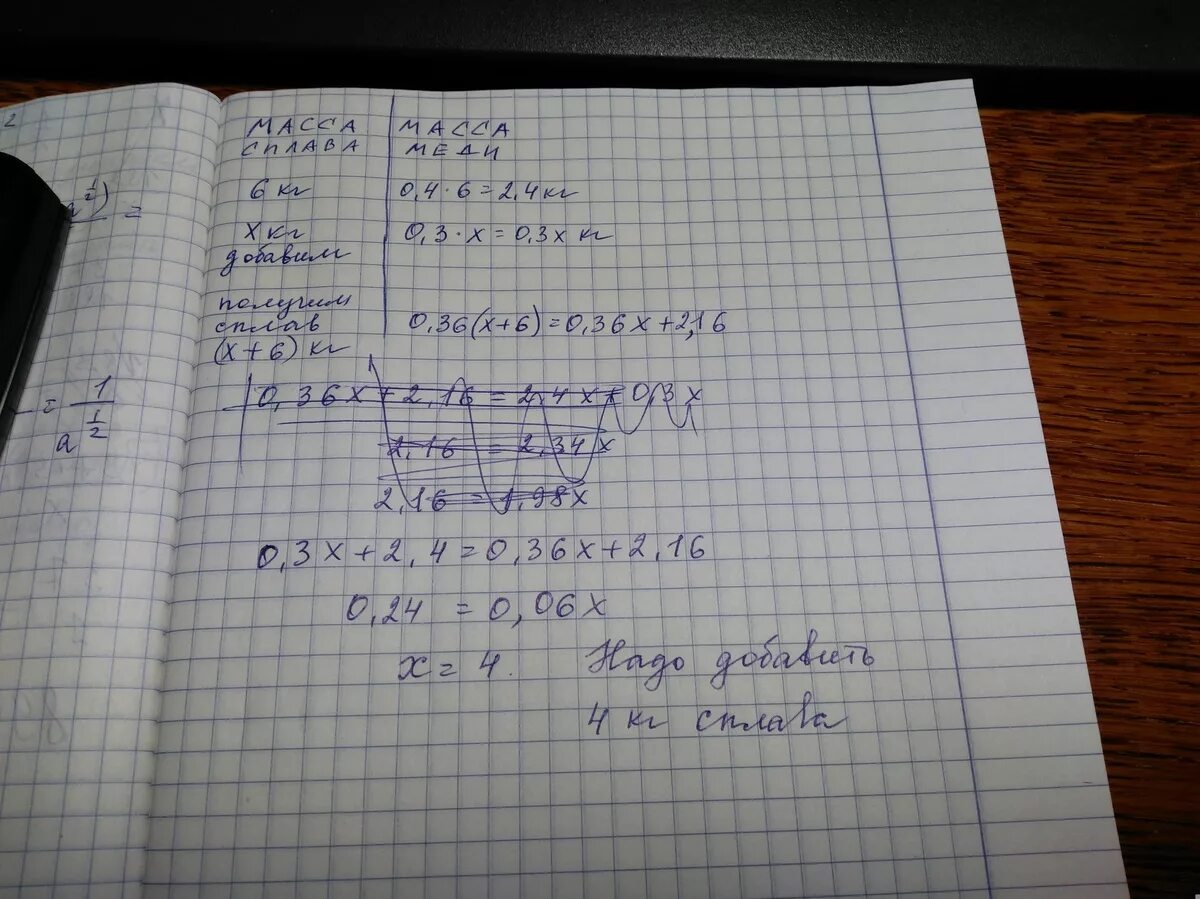 2
МАССА СПЛАВА | МАССА МЕДИ
6 кг | 0,4·6=2,4кг
x кг добавим | 0,3·x=0,3x кг
получим
сплав
(x+6) кг | 0,36(x+6)=0,36x+2,16
0,36x+2,16=2,4x+0,3x
2,16=2,34x
2,16=1,98x
0,3x+2,4=0,36x+2,16
0,24=0,06x
x=4. Надо добавить
4 кг сплава
=
= 1/a^(1/2)